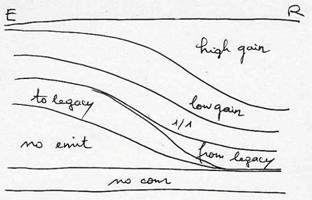 E R
high gain
low gain
to legacy
1/1
from legacy
no emit
no com